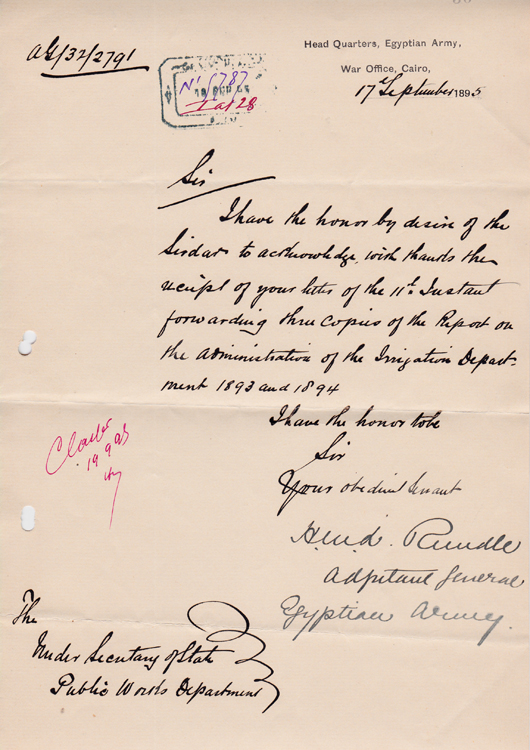 AG/32/2791
Head Quarters, Egyptian Army,
War Office, Cairo,
17th September 1895
No 6787
1 at 28
Sir
I have the honor by desire of the
Sirdar to acknowledge, with thanks the
receipt of your letter of the 11th Instant
forwarding three copies of the Report on
the administration of the Irrigation Depart-
ment 1893 and 1894
I have the honor to be
Sir
Your obedient Servant
19 9 95
H.M.L. Rundle
Adjutant General
Egyptian Army.
The
Under Secretary of State
Public Works Department